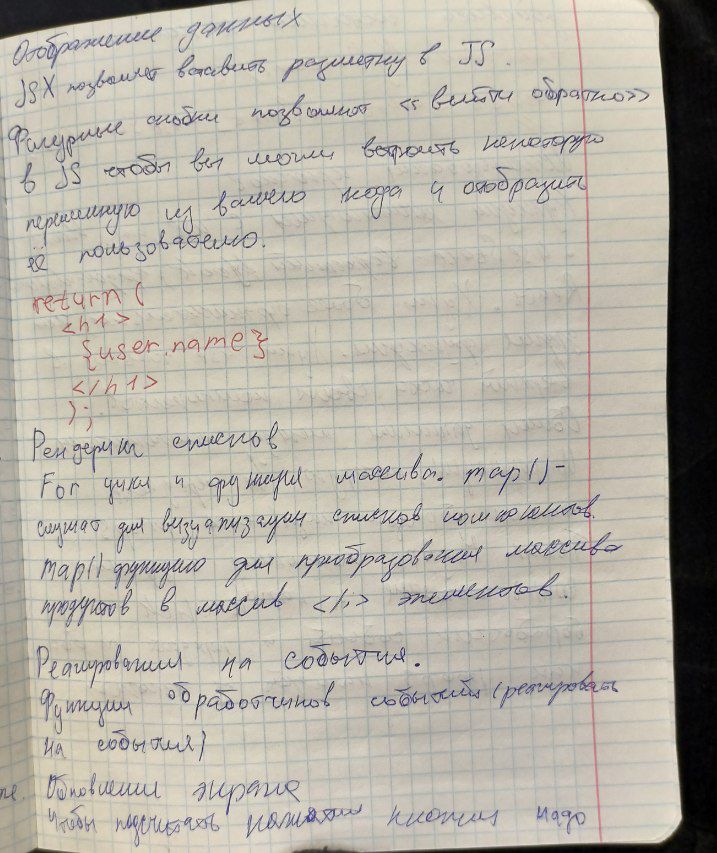 Отображение данных
JSX позволяет вставить разметку в JS.
Фигурные скобки позволяют «выйти обратно»
в JS чтобы вы могли встроить некоторую
переменную из вашего кода и отобразить
её пользователю.
return (
<h1>
{user.name}
</h1>
);
Рендеринг списков
For цикл и функция массива. map() -
служат для визуализации списков компонентов.
map() функцию для преобразования массива
продуктов в массив <li> элементов.
Реагирования на события.
Функции обработчиков событий (реагировать
на события)
Обновлении экрана
Чтобы подсчитать нажатия кнопки надо